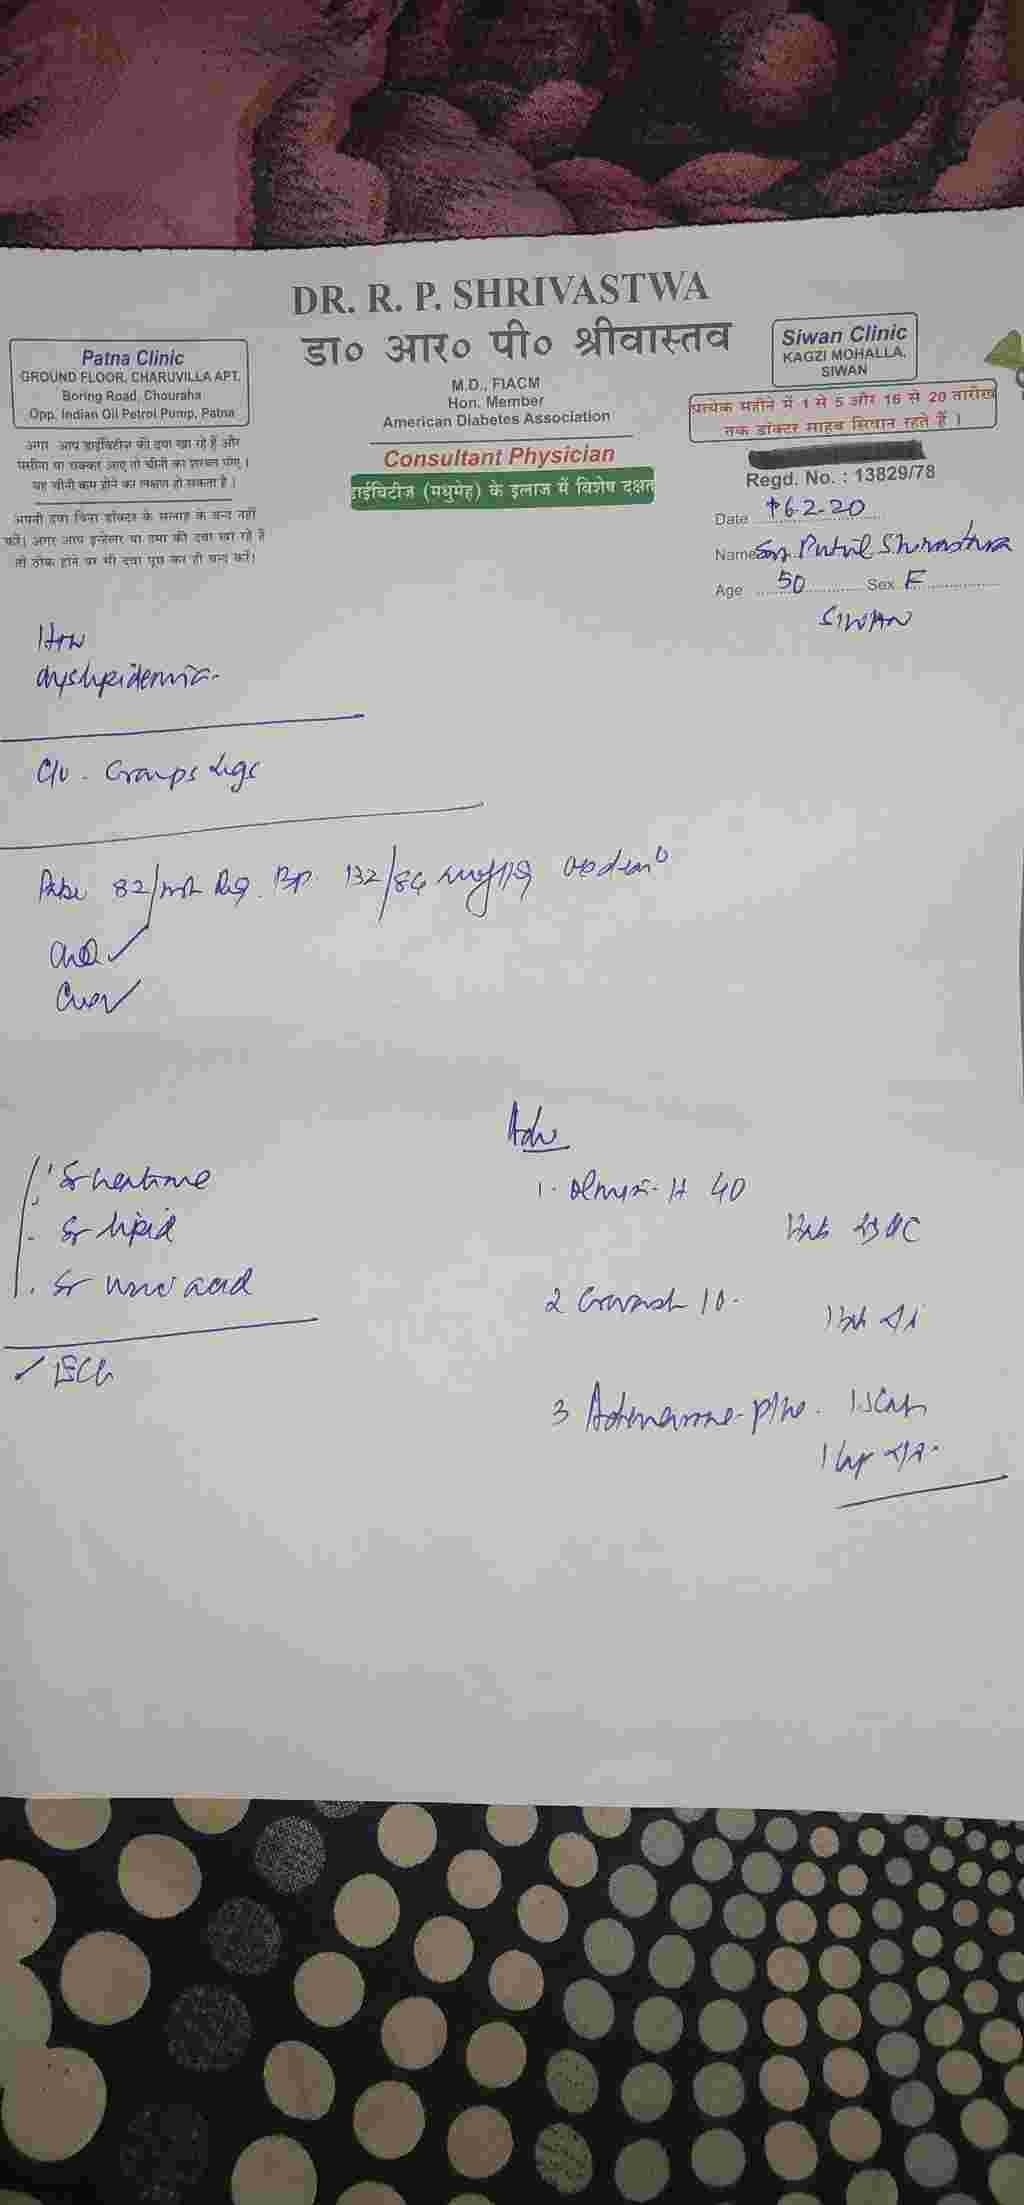 DR. R. P. SHRIVASTWA
डा० आर० पी० श्रीवास्तव
M.D., FIACM
Hon. Member
American Diabetes Association
Consultant Physician
डाईबिटीज (मधुमेह) के इलाज में विशेष दक्षता
Patna Clinic
GROUND FLOOR, CHARUVILLA APT.
Boring Road, Chouraha
Opp. Indian Oil Petrol Pump, Patna
अगर आप डाईबिटीज की दवा खा रहे हैं और
पसीना या चक्कर आए तो चीनी का शरबत पीए।
यह चीनी कम होने का लक्षण हो सकता है।
अपनी दवा बिना डॉक्टर के सलाह के बन्द नहीं
करें। अगर आप इन्हेलर या दमा की दवा खा रहे हैं
तो ठीक होने पर भी दवा पूछ कर ही बन्द करें।
Siwan Clinic
KAGZI MOHALLA,
SIWAN
प्रत्येक महीने में 1 से 5 और 16 से 20 तारीख
तक डॉक्टर साहब सिवान रहते हैं।
Regd. No. : 13829/78
Date 16-2-20
Name Putul
Age 50 Sex F
SIWAN
HTN
dyslipidemia
C/o - Cramps legs
Pulse 82/mt Reg. BP 132/84
Adv
Sr lipid
Sr uric acid
ECG
1. H 40
2 10
3 plus